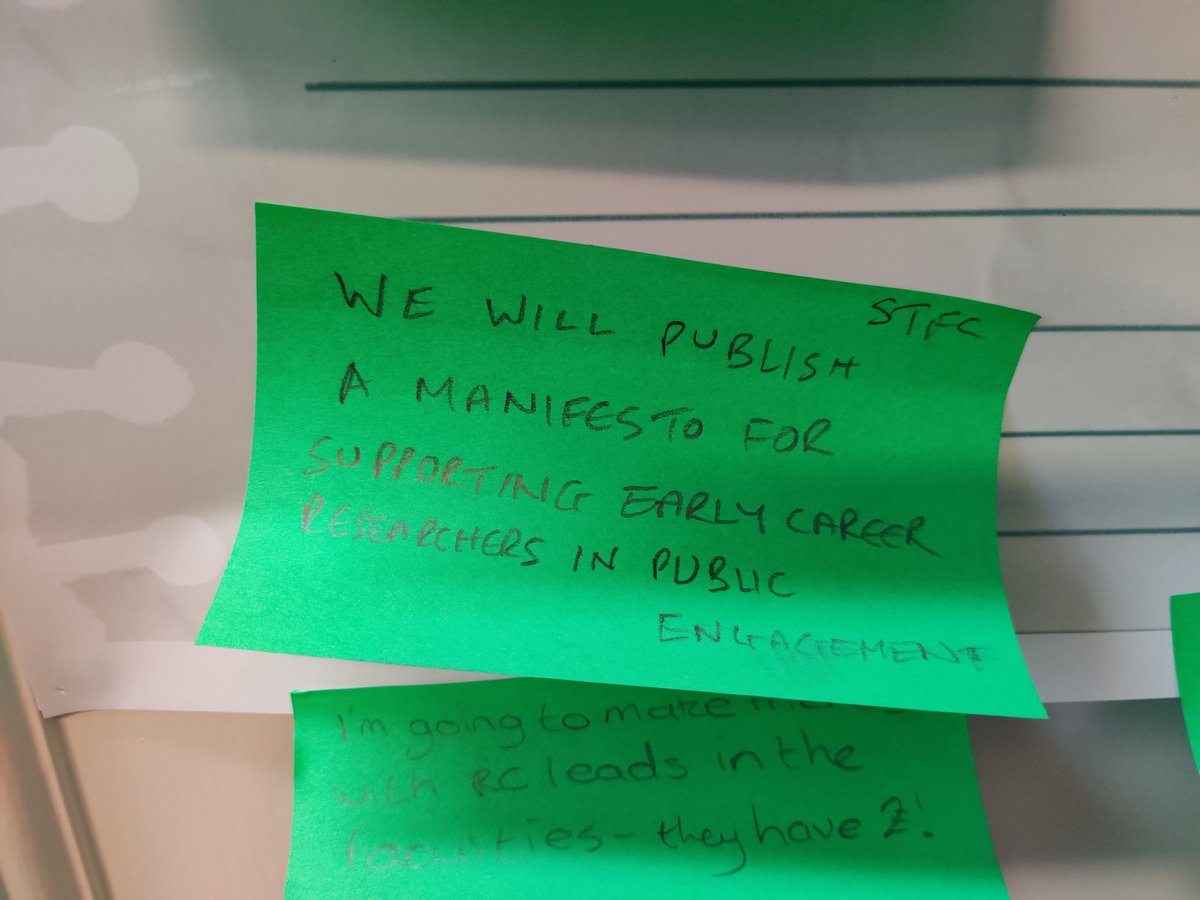 STFC
WE WILL PUBLISH
A MANIFESTO FOR
SUPPORTING EARLY CAREER
RESEARCHERS IN PUBLIC
ENGAGEMENT
I'm going to make
with RC leads in the
faculties - they have